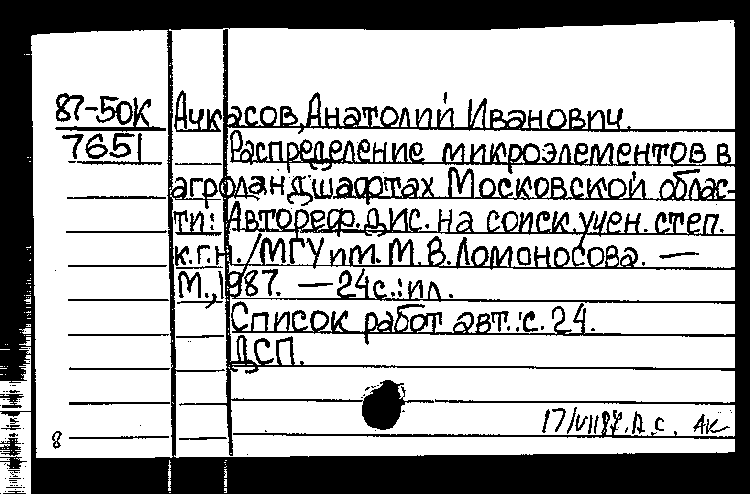 87-50К Ачкасов, Анатолий Иванович.
7651 Распределение микроэлементов в
агроландшафтах Московской облас-
ти: Автореф. дис. на соиск. учен. степ.
к.г.н. /МГУ им. М.В. Ломоносова. —
М., 1987. — 24с.: ил.
Список работ авт.: с. 24.
ДСП.
17/VII87. А.С. АК
8